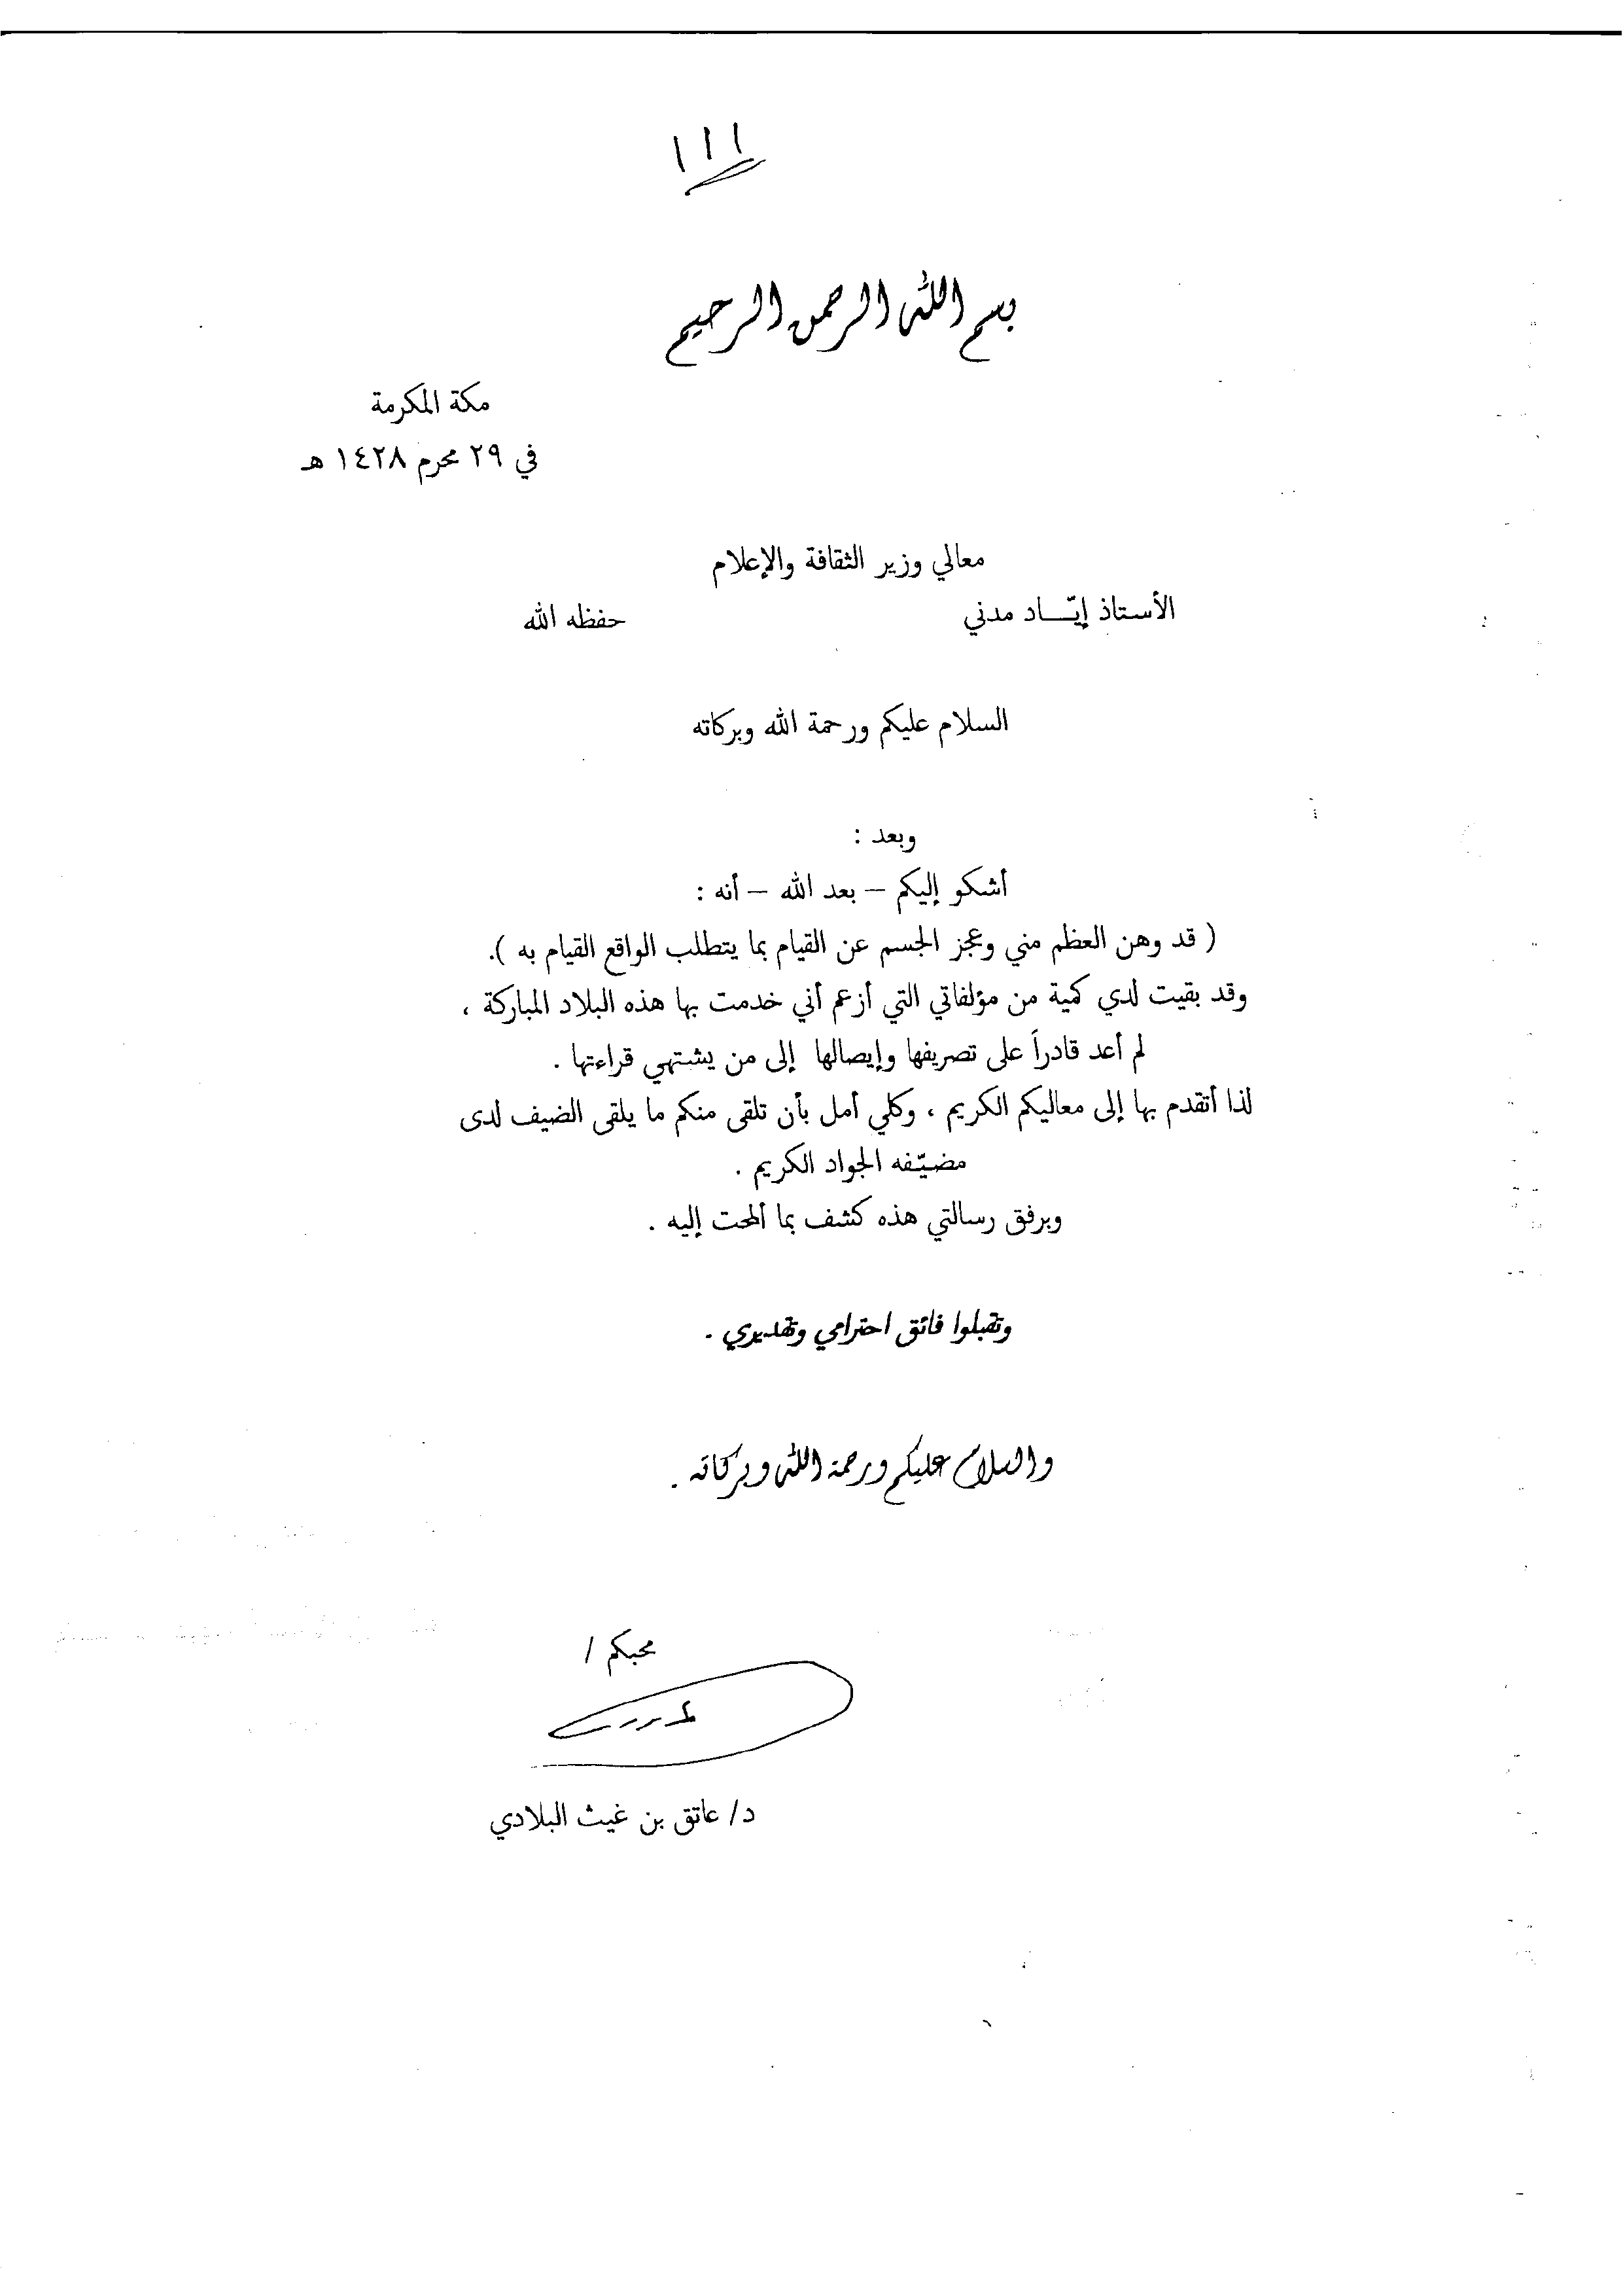 ١١١
بسم الله الرحمن الرحيم
مكة المكرمة
في ٢٩ محرم ١٤٢٨ هـ
معالي وزير الثقافة والإعلام
الأستاذ إيّـــاد مدني حفظه الله
السلام عليكم ورحمة الله وبركاته
وبعد :
أشكو إليكم – بعد الله – أنه :
( قد وهن العظم مني وعجز الجسم عن القيام بما يتطلب الواقع القيام به ).
وقد بقيت لدي كمية من مؤلفاتي التي أزعم أني خدمت بها هذه البلاد المباركة ،
لم أعد قادراً على تصريفها وإيصالها إلى من يشتهي قراءتها .
لذا أتقدم بها إلى معاليكم الكريم ، وكلي أمل بأن تلقى منكم ما يلقى الضيف لدى
مضيّفه الجواد الكريم .
وبرفق رسالتي هذه كشف بما ألمحت إليه .
وتقبلوا فائق احترامي وتقديري .
والسلام عليكم ورحمة الله وبركاته .
محبكم /
د/ عاتق بن غيث البلادي